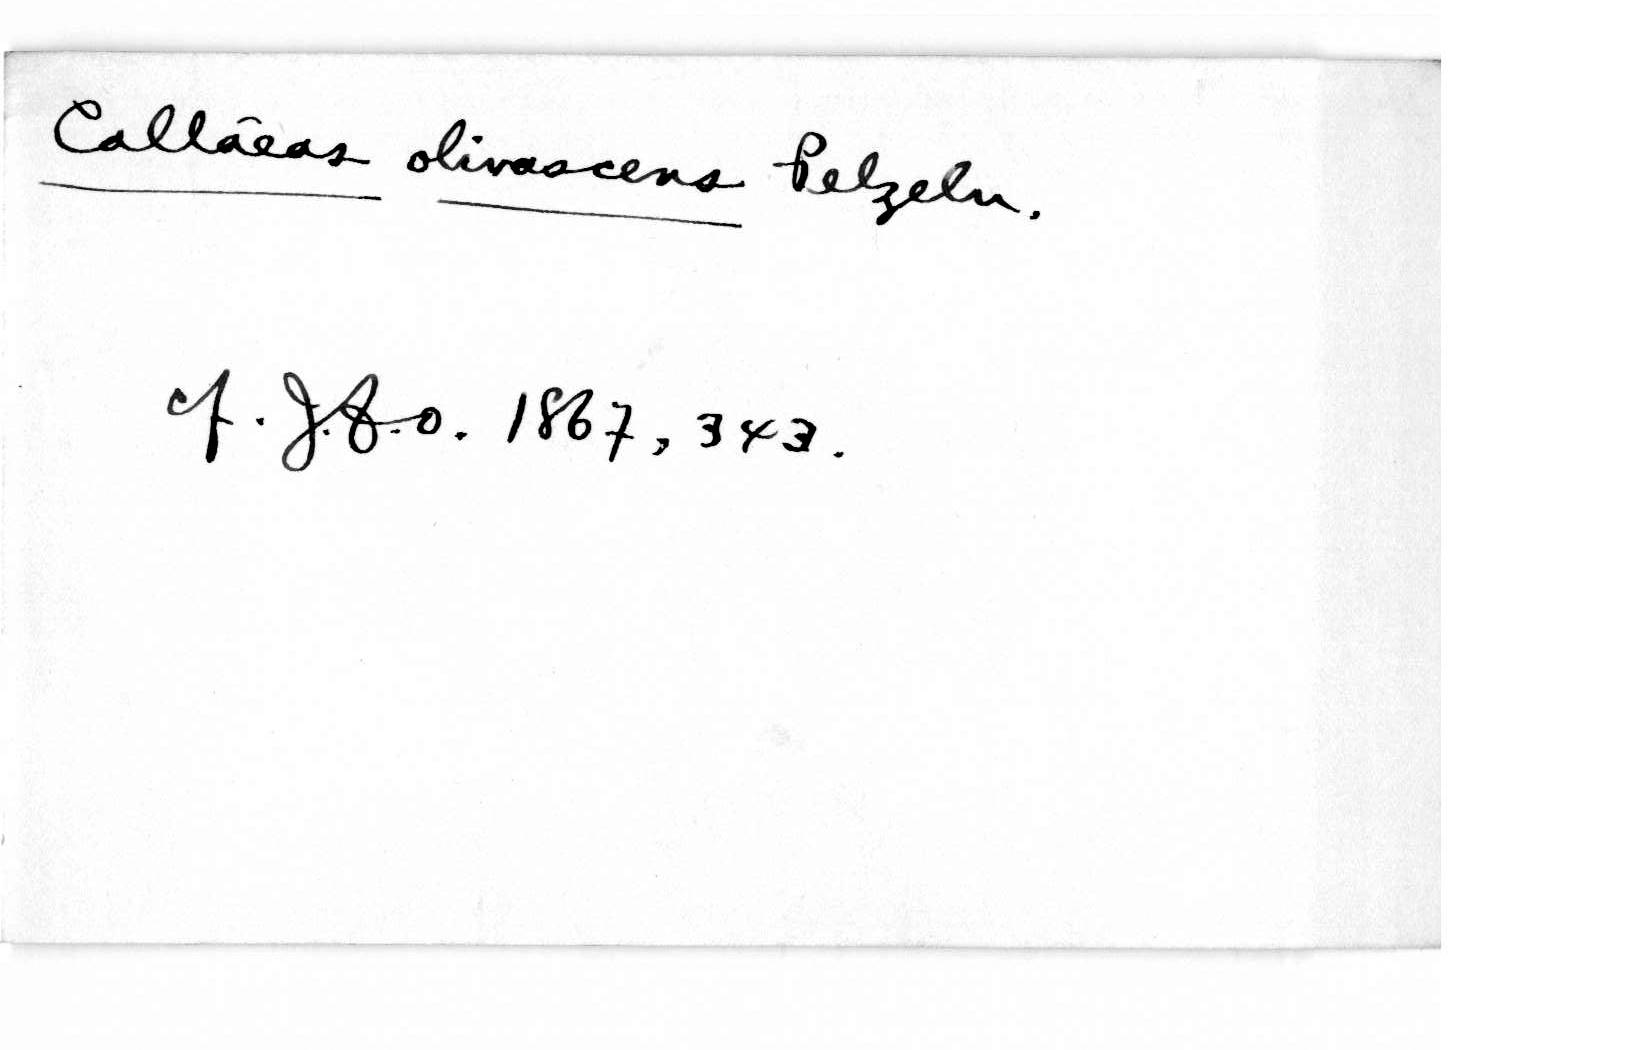 Calläeas olivascens Pelzeln.
cf. J.f.O. 1867, 343.